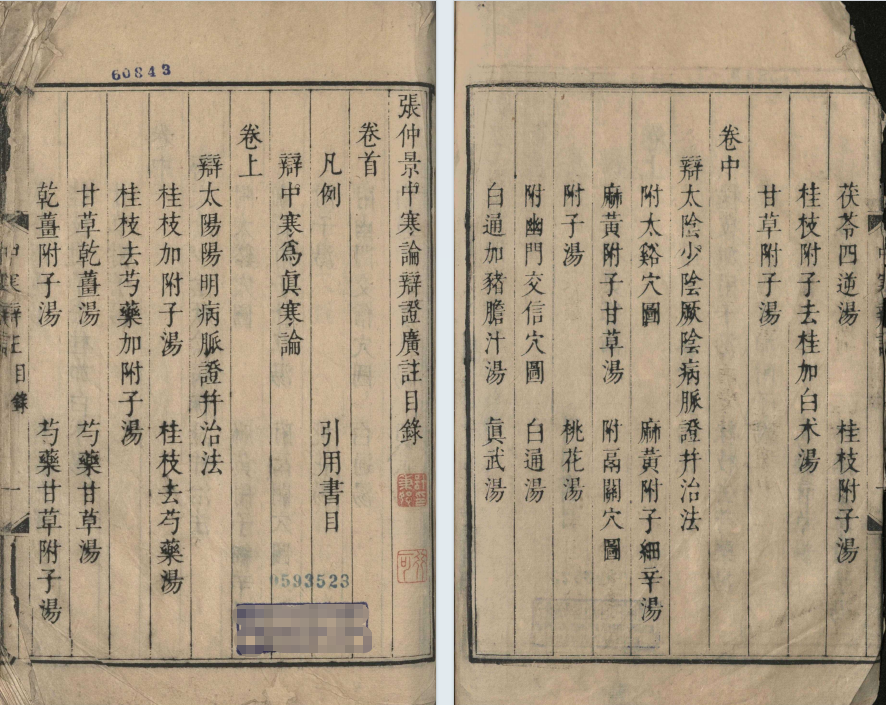 60843
張仲景中寒論辯證廣註目錄
卷首
凡例　引用書目
辯中寒爲眞寒論
卷上
辯太陽陽明病脈證幷治法
桂枝加附子湯　桂枝去芍藥湯
桂枝去芍藥加附子湯
甘草乾薑湯　芍藥甘草湯
乾薑附子湯　芍藥甘草附子湯
目錄　一
0593523
茯苓四逆湯　桂枝附子湯
桂枝附子去桂加白术湯
甘草附子湯
卷中
辯太陰少陰厥陰病脈證幷治法
附太谿穴圖　麻黃附子細辛湯
麻黃附子甘草湯　附鬲關穴圖
附子湯　桃花湯
附幽門交信穴圖　白通湯
白通加豬膽汁湯　眞武湯